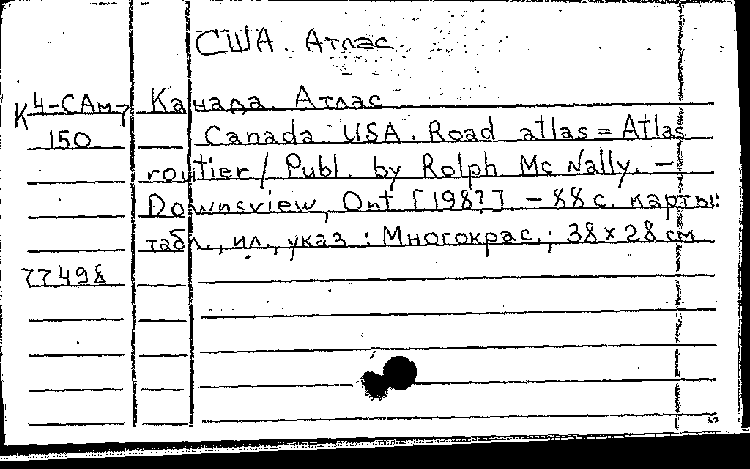 США. Атлас
К4-САм-7 Канада. Атлас
150 Canada. USA. Road atlas = Atlas
routier / Publ. by Rolph Mc Nally. –
Downsview, Ont [198?]. – 88 с. карты:
табл., ил., указ : Многокрас.; 38 х 28 см
77498